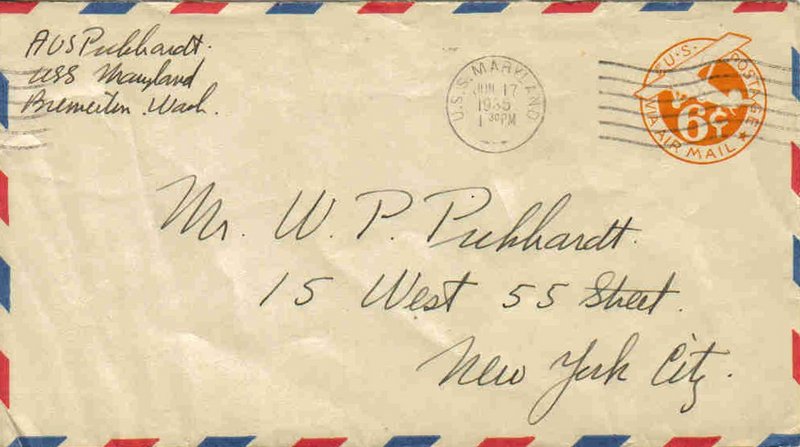 AVS Pickhardt.
USS Maryland
Bremerton. Wash.
U.S.S. MARYLAND
JUN 17
1935
1 30 PM
U.S. POSTAGE
6¢
VIA AIR MAIL
Mr. W. P. Pickhardt.
15 West 55 Street.
New York City.